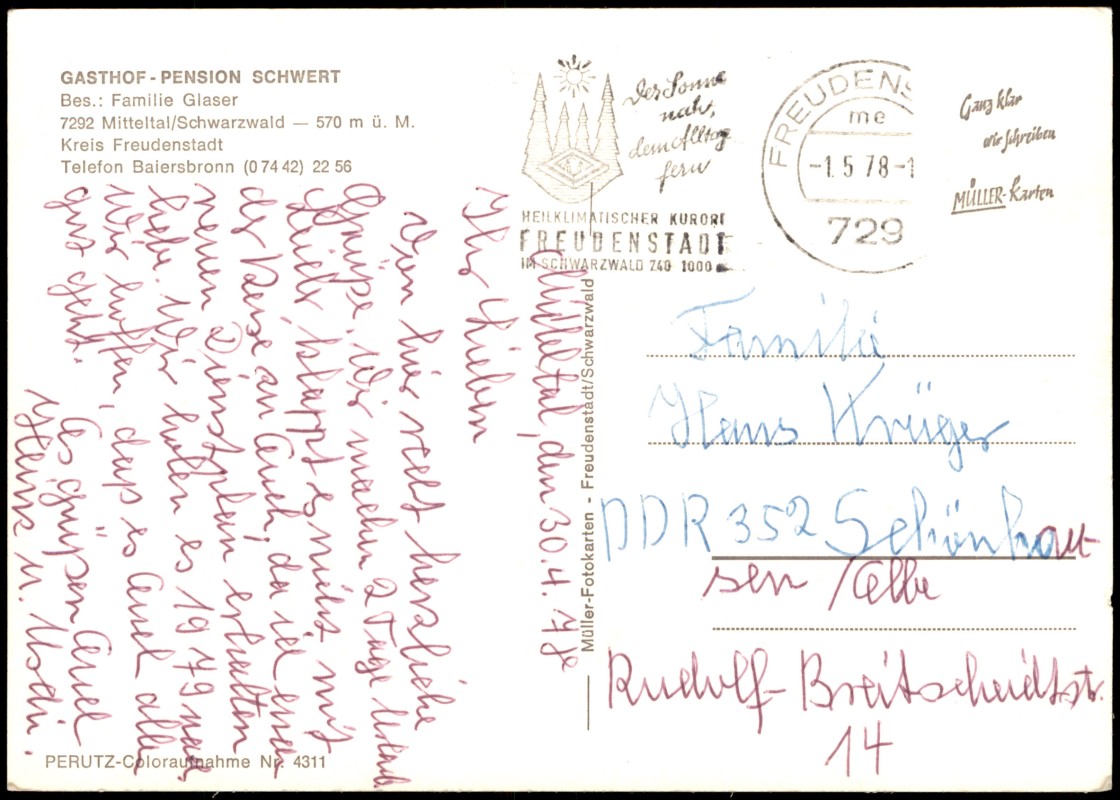 GASTHOF - PENSION SCHWERT
Bes.: Familie Glaser
7292 Mitteltal/Schwarzwald — 570 m ü. M.
Kreis Freudenstadt
Telefon Baiersbronn (0 74 42) 22 56
Der Sonne
nah,
dem Alltag
fern
HEILKLIMATISCHER KURORT
FREUDENSTADT
IM SCHWARZWALD 740 1000
FREUDENS
me
-1.5 78-1
729
Ganz klar
wir schreiben
MÜLLER-Karten
Mitteltal, den 30.4.78
Ihr Lieben
Von hier recht herzliche
Grüße. Wir machen 2 Tage Urlaub
Leider klappt es nicht mit
der Reise an Euch, da ich einen
neuen Dienstplan erhalten
habe. Wir holen es 1979 nach
Wir hoffen, daß es Euch allen
gut geht.
Es grüßen Euch
Heinz u.
Familie
Hans Krüger
DDR 352 Schönhau-
sen /Elbe
Rudolf-Breitscheidtstr.
14
Müller-Fotokarten - Freudenstadt/Schwarzwald
PERUTZ-Coloraufnahme Nr. 4311